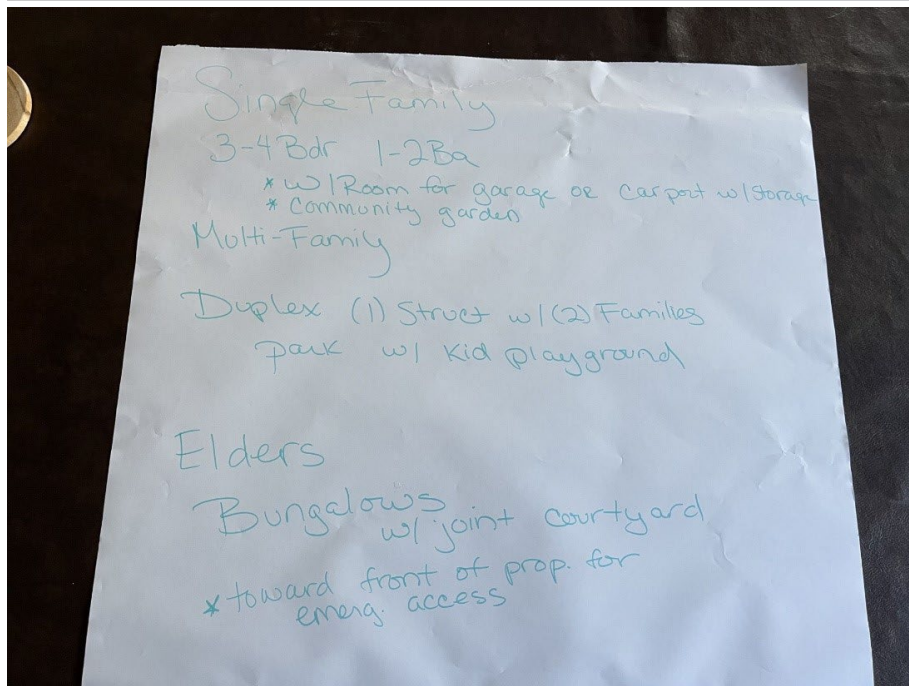 Single Family
3-4 Bdr 1-2Ba
* w/Room for garage or Carport w/Storage
* Community garden
Multi-Family
Duplex (1) Struct w/(2) Families
park w/ kid playground
Elders
Bungalows
w/ joint courtyard
* toward front of prop. for
emerg. access